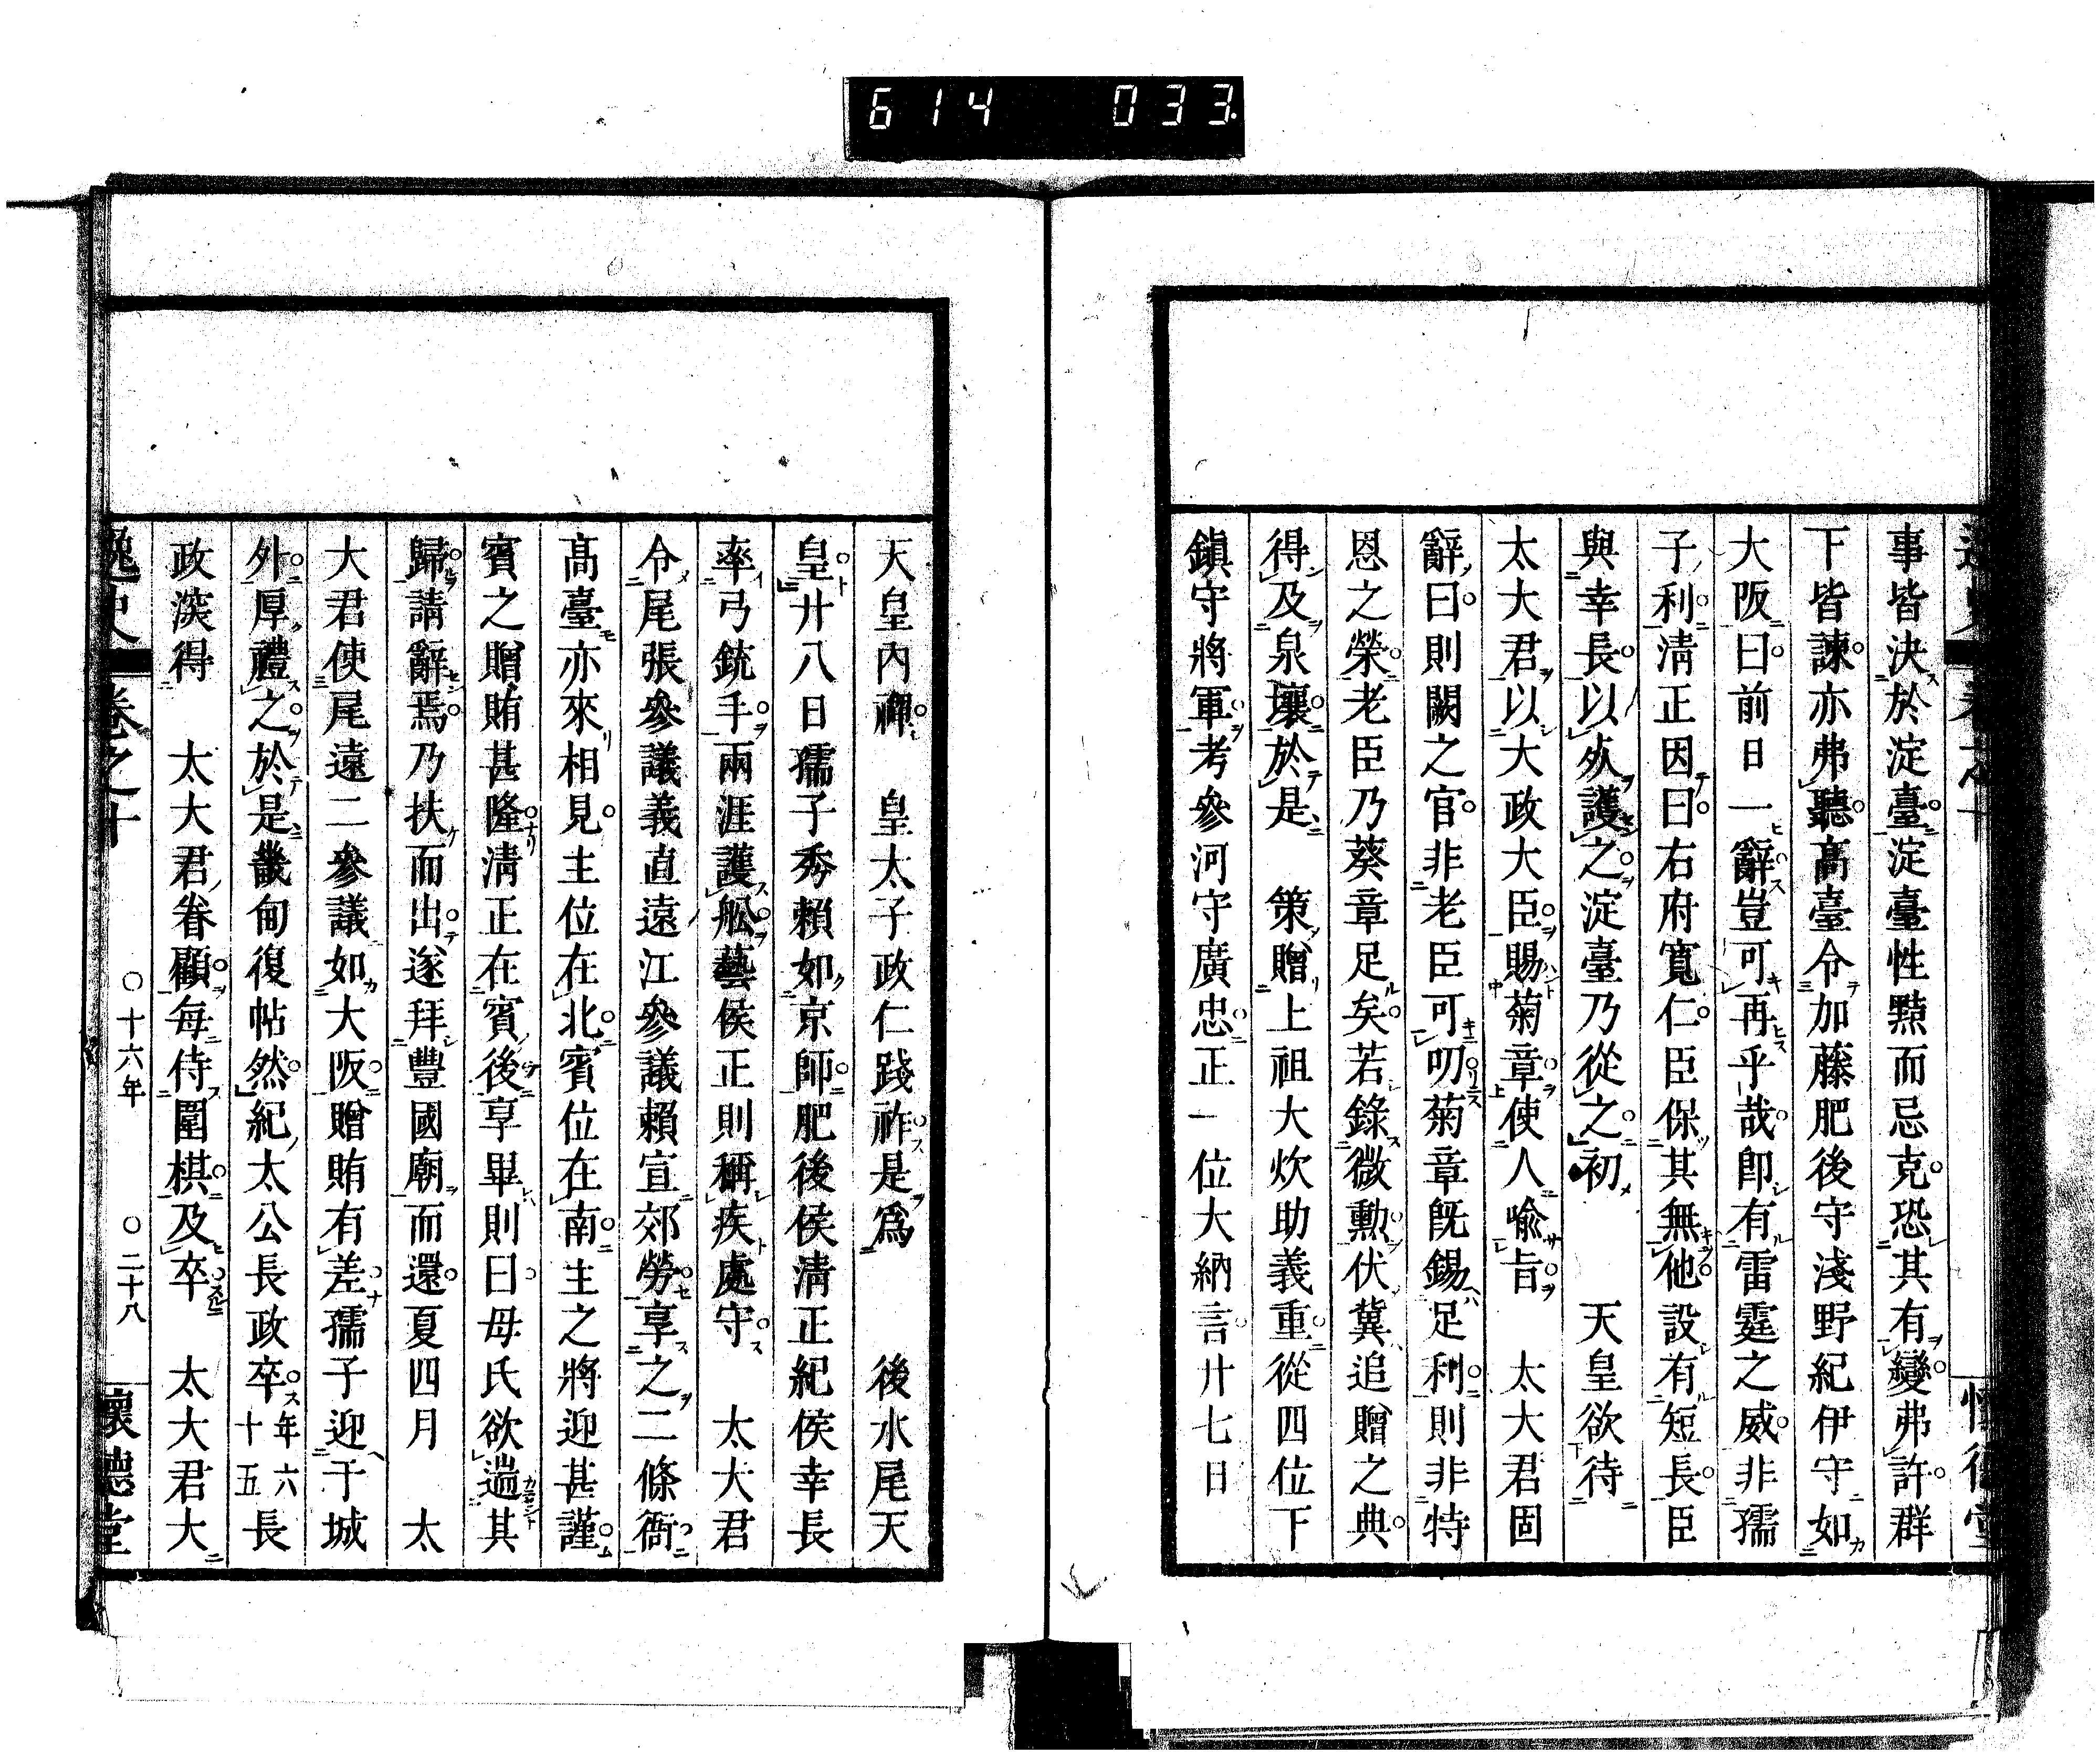 614 033
事皆決於淀臺淀臺性黠而忌克恐其有變弗許群
下皆諫亦弗聽髙臺令加藤肥後守淺野紀伊守如
大阪曰前日一辭豈可再乎哉卽有雷霆之威非孺
子利淸正因曰右府寬仁臣保其無他設有短長臣
與幸長以死護之淀臺乃從之初　天皇欲待
太大君以大政大臣賜菊章使人喩旨　太大君固
辭曰則闕之官非老臣可叨菊章旣錫足利則非特
恩之榮老臣乃葵章足矣若錄微勳伏冀追贈之典
得及泉壤於是　策贈上祖大炊助義重從四位下
鎭守將軍考參河守廣忠正一位大納言廿七日
天皇內禪　皇太子政仁踐祚是爲　後水尾天
皇廿八日孺子秀賴如京師肥後侯淸正紀侯幸長
率弓銃手兩涯護舩藝侯正則稱疾處守　太大君
令尾張參議義直遠江參議賴宣郊勞享之二條衙
髙臺亦來相見主位在北賓位在南主之將迎甚謹
賓之贈賄甚隆淸正在賓後享畢則曰母氏欲遄其
歸請辭焉乃扶而出遂拜豐國廟而還夏四月　太
大君使尾遠二參議如大阪贈賄有差孺子迎于城
外厚禮之於是畿甸復帖然紀太公長政卒年六十五長
政深得　太大君眷顧每侍圍棋及卒　太大君大
逸史　卷之十　〇十六年　〇二十八　懷德堂